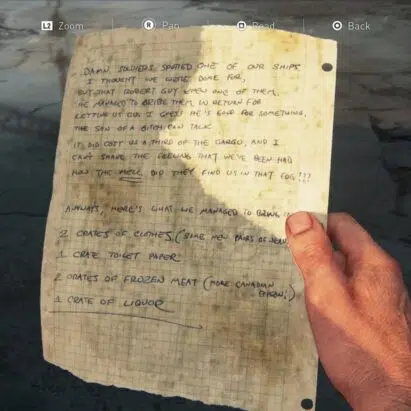 L2 Zoom R Pan Read Back
DAMN SOLDIERS SPOTTED ONE OF OUR SHIPS
I THOUGHT WE WERE DONE FOR,
BUT THAT ROBERT GUY KNEW ONE OF THEM.
HE MANAGED TO BRIBE THEM IN RETURN FOR
LETTING US GO. I GUESS HE'S GOOD FOR SOMETHING,
THE SON OF A BITCH CAN TALK.
IT DID COST US A THIRD OF THE CARGO, AND I
CAN'T SHAKE THE FEELING THAT WE'VE BEEN HAD
HOW THE HELL DID THEY FIND US IN THAT FOG???
ANYWAYS, HERE'S WHAT WE MANAGED TO BRING
2 CRATES OF CLOTHES, (SOME NEW PAIRS OF
1 CRATE TOILET PAPER
2 CRATES OF FROZEN MEAT (MORE CANADIAN
BACON!)
1 CRATE OF LIQUOR